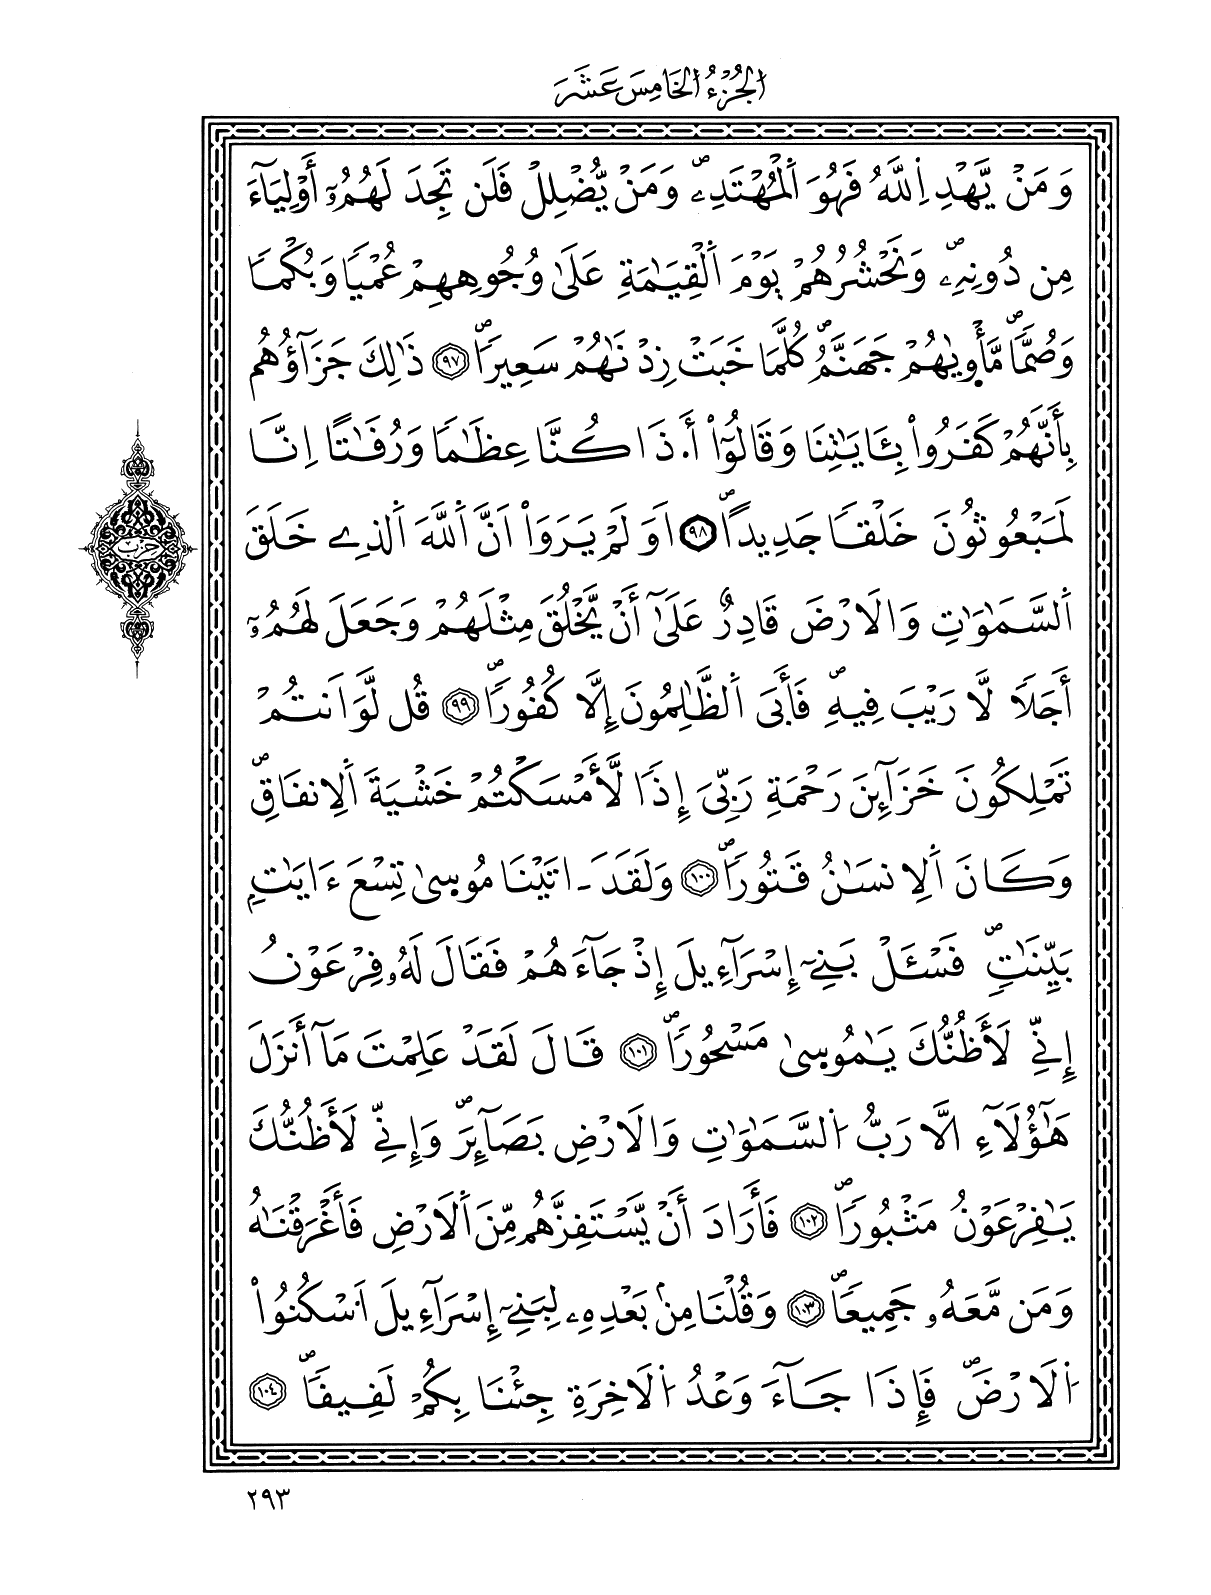 الجزء الخامس عشر
وَمَنْ يَّهْدِ اِ۬للَّهُ فَهُوَ اَ۬لْمُهْتَدِۦۖ وَمَنْ يُّضْلِلْ فَلَن تَجِدَ لَهُمُۥٓ أَوْلِيَآءَ
مِن دُونِهِۦۖ وَنَحْشُرُهُمْ يَوْمَ اَ۬لْقِيَٰمَةِ عَلَىٰ وُجُوهِهِمْ عُمْياٗ وَبُكْماٗ
وَصُمّاٗۖ مَّأْوِيٰهُمْ جَهَنَّمُۖ كُلَّمَا خَبَتْ زِدْنَٰهُمْ سَعِيراٗۖ ٩٧ ذَٰلِكَ جَزَآؤُهُم
بِأَنَّهُمْ كَفَرُواْ بِـَٔايَٰتِنَا وَقَالُوٓاْ أَ.ذَا كُنَّا عِظَٰماٗ وَرُفَٰتاً اِنَّا
لَمَبْعُوثُونَ خَلْقاٗ جَدِيداًۖ ٩٨ اَوَلَمْ يَرَوَاْ اَنَّ اَ۬للَّهَ اَ۬لذِے خَلَقَ
اَ۬لسَّمَٰوَٰتِ وَالَارْضَ قَادِرٌ عَلَىٰٓ أَنْ يَّخْلُقَ مِثْلَهُمْ وَجَعَلَ لَهُمُۥٓ
أَجَلاٗ لَّا رَيْبَ فِيهِۖ فَأَبَى اَ۬لظَّٰلِمُونَ إِلَّا كُفُوراٗۖ ٩٩ قُل لَّوَ اَنتُمْ
تَمْلِكُونَ خَزَآئِنَ رَحْمَةِ رَبِّىَ إِذاٗ لَّأَمْسَكْتُمْ خَشْيَةَ اَ۬لِانفَاقِۖ
وَكَانَ اَ۬لِانسَٰنُ قَتُوراٗۖ ١٠٠ وَلَقَدَ ـ اتَيْنَا مُوسِىٰ تِسْعَ ءَايَٰتِۭ
بَيِّنَٰتٖۖ فَسْـَٔلْ بَنِےٓ إِسْرَآءِيلَ إِذْ جَآءَهُمْ فَقَالَ لَهُۥ فِرْعَوْنُ
إِنِّے لَأَظُنُّكَ يَٰمُوسِىٰ مَسْحُوراٗۖ ١٠١ قَالَ لَقَدْ عَلِمْتَ مَآ أَنزَلَ
هَٰٓؤُلَآءِ الَّا رَبُّ اُ۬لسَّمَٰوَٰتِ وَالَارْضِ بَصَآئِرَۖ وَإِنِّے لَأَظُنُّكَ
يَٰفِرْعَوْنُ مَثْبُوراٗۖ ١٠٢ فَأَرَادَ أَنْ يَّسْتَفِزَّهُم مِّنَ اَ۬لَارْضِ فَأَغْرَقْنَٰهُ
وَمَن مَّعَهُۥ جَمِيعاٗۖ ١٠٣ وَقُلْنَا مِنۢ بَعْدِهِۦ لِبَنِےٓ إِسْرَآءِيلَ اَ۟سْكُنُواْ
اُ۬لَارْضَۖ فَإِذَا جَآءَ وَعْدُ اُ۬لَاخِرَةِ جِئْنَا بِكُمْ لَفِيفاٗۖ ١٠٤
حزب
٢٩٣